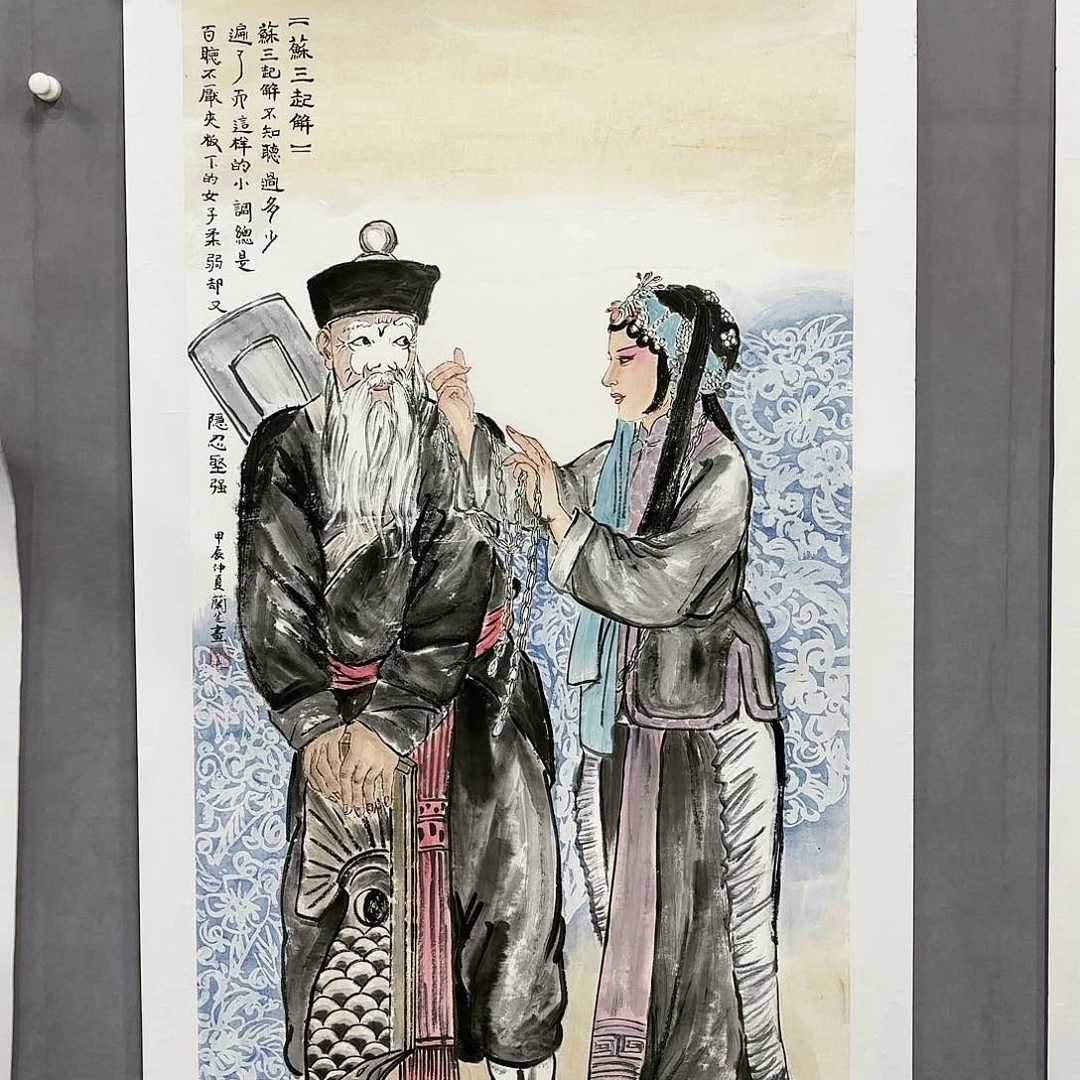 【蘇三起解】
蘇三起解不知聽過多少
遍了而這样的小調總是
百聴不厭夾板下的女子柔弱却又
隱忍堅强
甲辰仲夏蘭芝畫